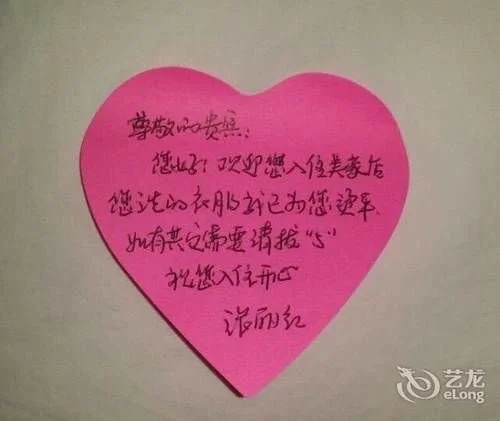 尊敬的贵宾：
您好！欢迎您入住类豪后
您洗的衣服我已为您烫平、
如有其它需要请拨“5”
祝您入住开心
张丽红
艺龙
eLong